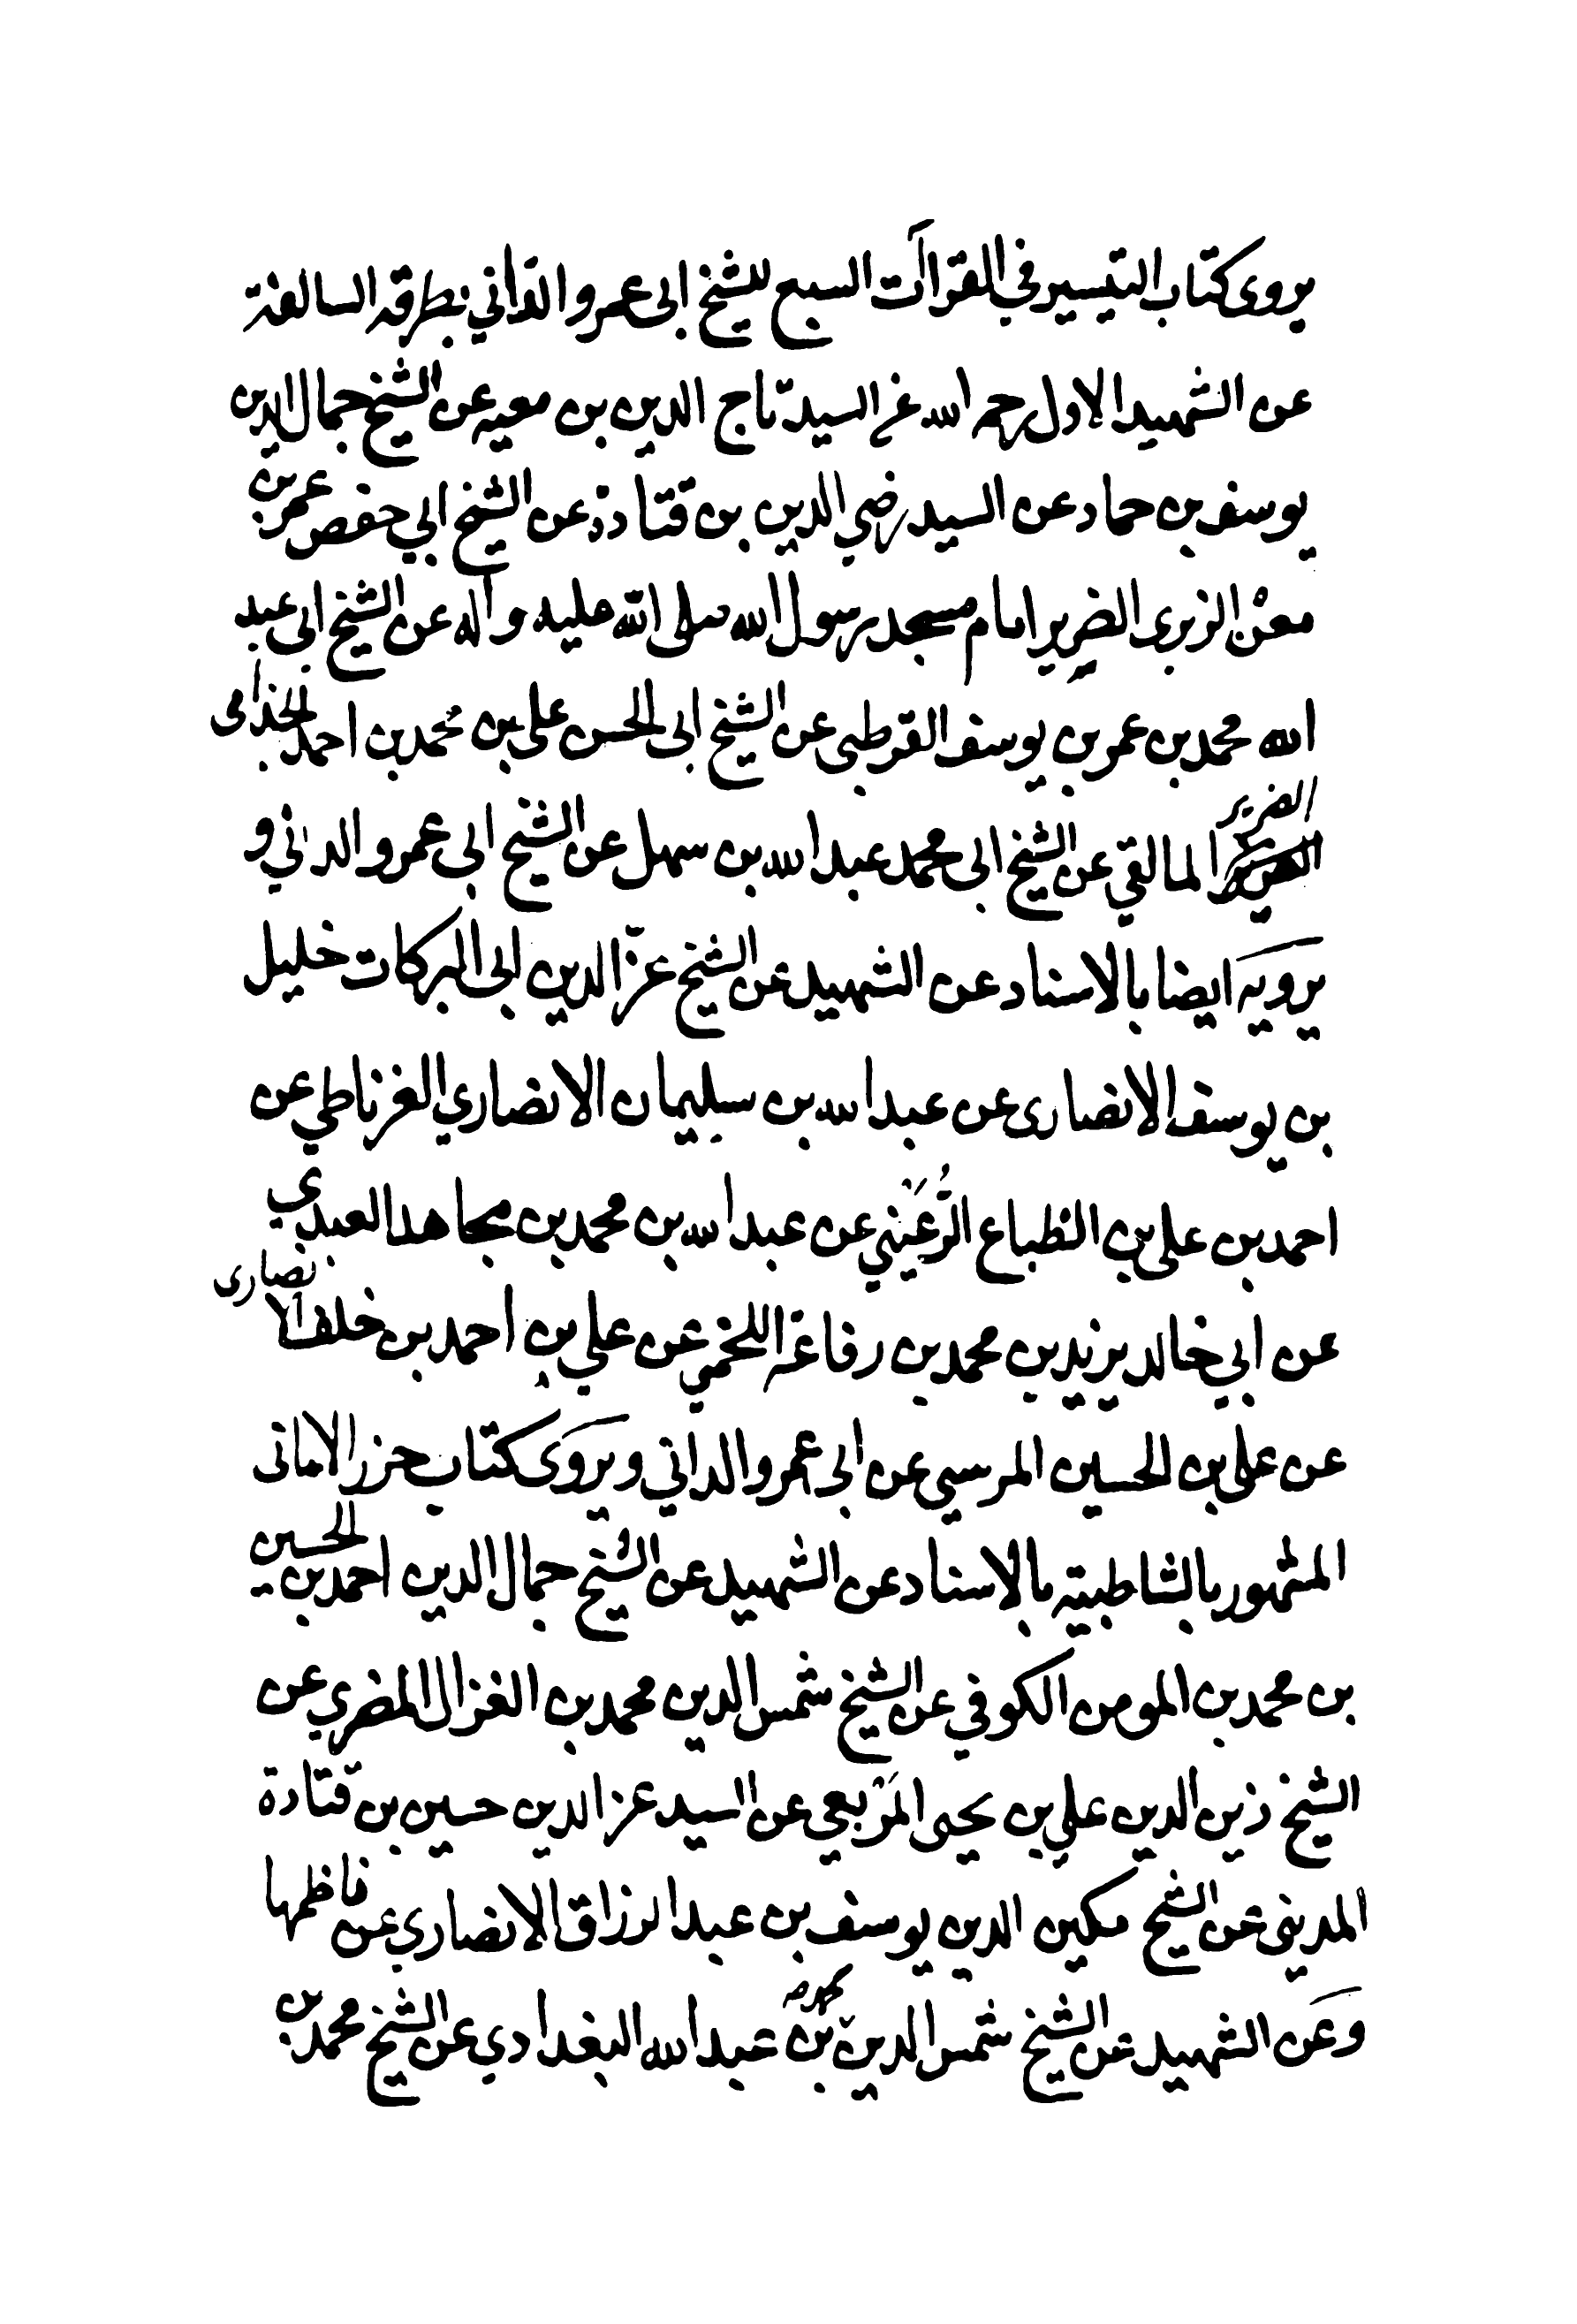 يروى كتاب التيسير في القرآات السبع للشيخ ابى عمرو الدّاني بطرقه السالفة
عن الشهيد الاول رحمه الله عن السيد تاج الدين بن معيه عن الشيخ جمال الدين
يوسف بن حماد عن السيد رضي الدين بن قتادة عن الشيخ ابي حفص عمر بن
معنْ الزبرى الضرير امام مسجد رسول الله صلى الله عليه وآله عن الشيخ ابى عبد
الله محمد بن عمر بن يوسف القرطبى عن الشيخ ابى الحسن على بن محمد بن احمد الجذامى
الضرير المالقي عن الشيخ ابى محمد عبد الله بن سهل عن الشيخ ابى عمرو الدانى و
يرويه ايضا بالاسناد عن الشهيد عن الشيخ عزّ الدين ابى البركات خليل
بن يوسف الانصارى عن عبد الله بن سليمان الانصاري الغرناطي عن
احمد بن على بن الطباع الرُّعَيْنى عن عبد الله بن محمد بن مجاهد العبدي
عن ابي خالد يزيد بن محمد بن رفاعة اللخمي عن علي بن احمد بن خلف الانصارى
عن على بن الحسين المرسي عن ابى عمرو الداني ويروى كتاب حرز الامانى
المشهور بالشاطبية بالاسناد عن الشهيد عن الشيخ جمال الدين احمد بن الحسين
بن محمد بن المومن الكوفي عن الشيخ شمس الدين محمد بن الغزال المضري عن
الشيخ زين الدين علي بن يحيى المرْبعي عن السيد عز الدين حسين بن قتادة
المدينى عن الشيخ مكين الدين يوسف بن عبد الرزاق الانصاري عن ناظمها
وعن الشهيد عن الشيخ شمس الدين محمد بن عبد الله البغدادي عن الشيخ محمد بن